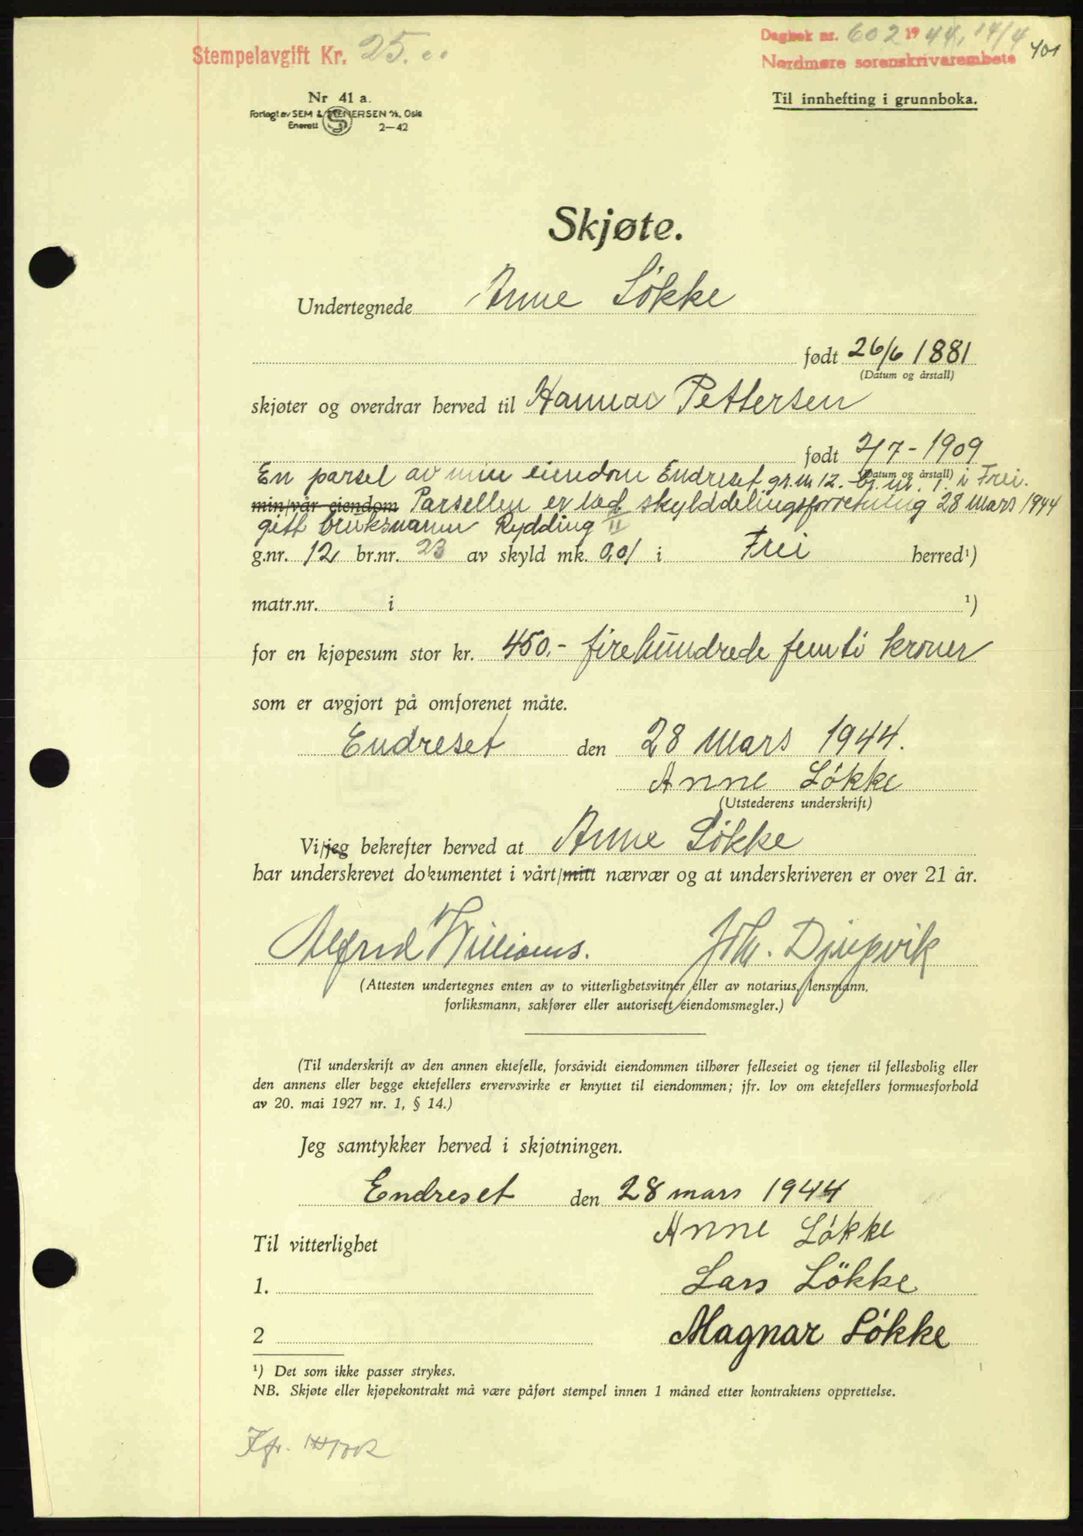 Stempelavgift Kr. 25.00
Dagbok nr. 602 1944, 14/4
Nordmøre sorenskrivarembete
401
Nr 41 a.
Forlagt av SEM & STENERSEN A/S, Oslo
Enerett 2—42
Til innhefting i grunnboka.
Skjøte.
Undertegnede Anne Løkke
født 26/6 1881
(Datum og årstall)
skjøter og overdrar herved til Hannar Pettersen
født 2/7 - 1909
(Datum og årstall)
En parsel av min eiendom Endreset gr.nr 12. br. nr. 1. i Frei.
min/vår eiendom Parsellen er ved skylddelingsforretning 28 mars 1944
gitt bruksnavn Rydding II
g.nr. 12 br.nr. 23 av skyld mk. 0,01 i Frei herred¹)
matr.nr. i ¹)
for en kjøpesum stor kr. 450.- firehundrede femti kroner
som er avgjort på omforenet måte.
Endreset den 28 Mars 1944.
Anne Løkke
(Utstederens underskrift)
Vi/jeg bekrefter herved at Anne Løkke
har underskrevet dokumentet i vårt/mitt nærvær og at underskriveren er over 21 år.
Alfred Williams. Joh. Djupvik
(Attesten undertegnes enten av to vitterlighetsvitner eller av notarius, lensmann,
forliksmann, sakfører eller autorisert eiendomsmegler.)
(Til underskrift av den annen ektefelle, forsåvidt eiendommen tilhører felleseiet og tjener til fellesbolig eller
den annens eller begge ektefellers ervervsvirke er knyttet til eiendommen; jfr. lov om ektefellers formuesforhold
av 20. mai 1927 nr. 1, § 14.)
Jeg samtykker herved i skjøtningen.
Endreset den 28 mars 1944
Anne Løkke
Til vitterlighet
1. Lars Løkke
2 Magnar Løkke
¹) Det som ikke passer strykes.
NB. Skjøte eller kjøpekontrakt må være påført stempel innen 1 måned etter kontraktens opprettelse.